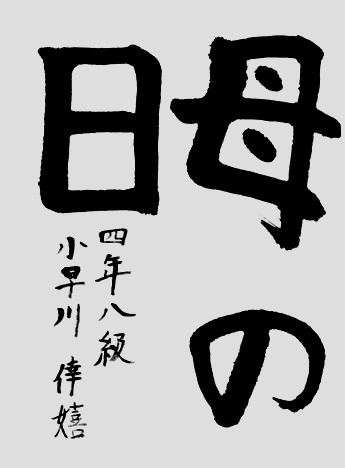 母の
日
四年八級
小早川倖嬉